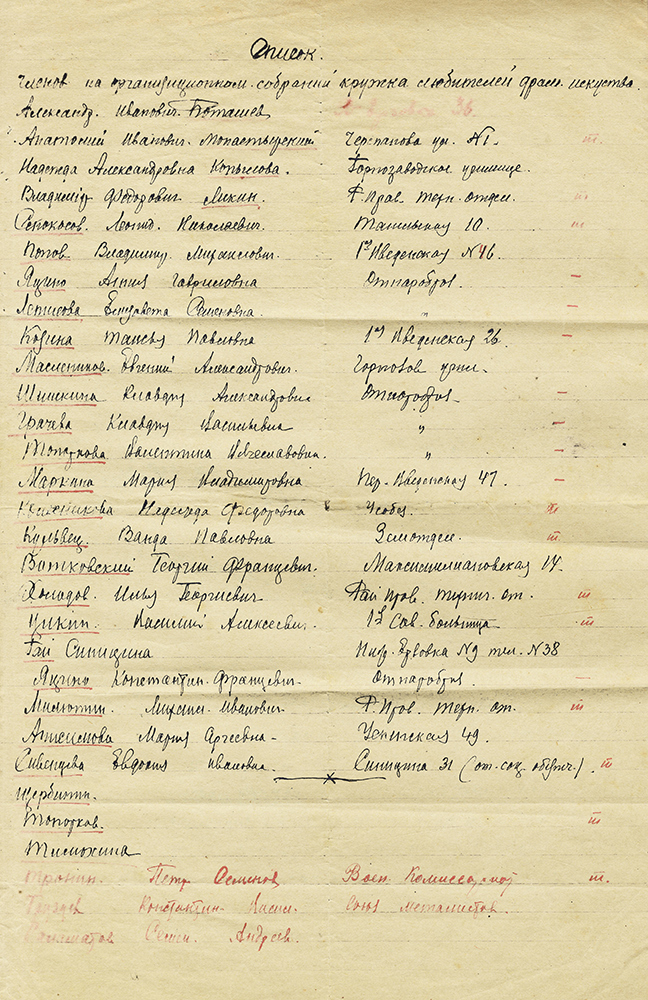 Список.
членов на организационном собрании кружка любителей драм. искуства.
Александр. Иванович Поташев 36.
Анатолий Иванович Монастырский Черепанова ул. №1. т.
Надежда Александровна Копылова. Горнозаводское училище.
Владимир Федорович Микин. Ф. Прав. Терр. отдел. т
Сенокосов. Леонид. Николаевич. Тагильская 10. т
Попов Владимир. Михайлович. 1я Введенская №46.
Яцино Гавриловна Отнаробраз. –
Елизавета Семеновна. „ –
Козина Таисья Павловна 1я Введенская 26. –
Маслеников. Евгений Александрович. Горнозав учил.
Шишкина Клавдия Александровна Отнаробраз –
Грачева Клавдия Васильевна „ –
Топоркова Валентина Вячеславовна. „ –
Маркина Мария Владимировна Пер. Введенская 47. –
Надежда Федоровна Усобез.
Кульвец. Ванда Павловна Земотдел. т.
Витковский Георгий Францевич. Максимилиановская 14.
Холодов. Илья Георгиевич Рай Пров. от. т
Цикин. Василий Алексеевич. 1я Сав. больница т
Гай Синицина №9 тел. №38
Яцино Константин. Францевич Отнаробраз. –
Милютин. Михаил Иванович Ф. Пров. Терр. от. т
Мария Сергеевна Уентская 49.
Сивенцева Евдокия Ивановна. Синицина 31 (от. соц. обеспеч.). т
Щербинин.
Топорков. т
Тимохина
Тронин. Петр Семенов Воен. Комиссариат т.
Груздев Константин Васил. Союз металистов.
Семен. Андреев.